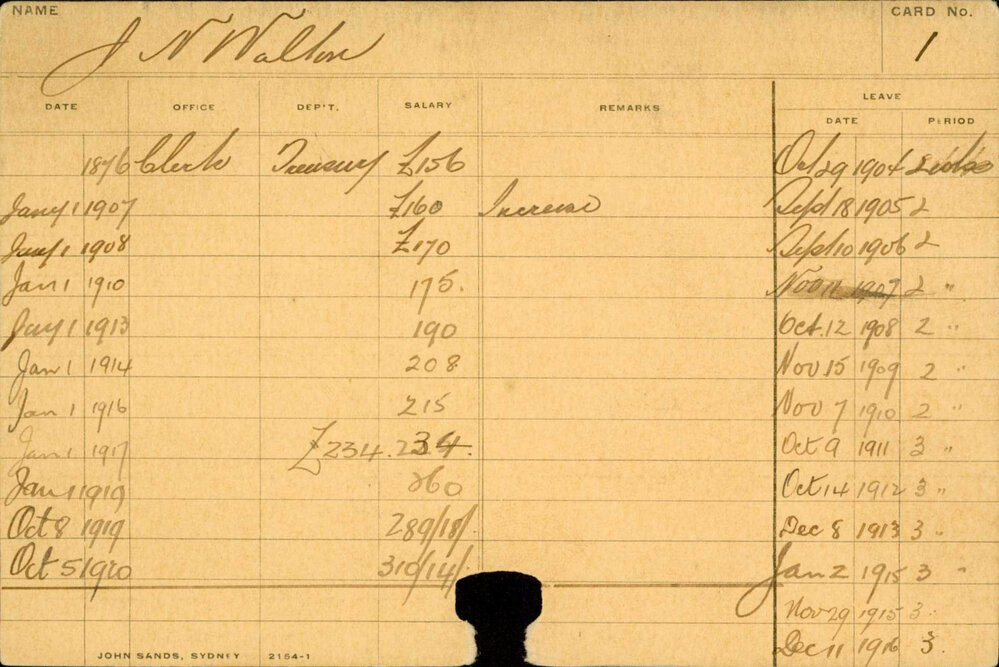 NAME CARD No.
J N Walton 1
DATE OFFICE DEP'T. SALARY REMARKS LEAVE
DATE PERIOD
1876 Clerk Treasury £156 Oct 29 1904
Jany 1 1907 £160 Increase Sept 18 1905 2
Jany 1 1908 £170 Sept 10 1906 2
Jan 1 1910 175. Nov 11 1907 2 "
Jany 1 1913 190 Oct. 12 1908 2 "
Jan 1 1914 208 Nov 15 1909 2 "
Jan 1 1916 215 Nov 7 1910 2 "
Jan 1 1917 £234. 234. Oct 9 1911 3 "
Jan 1 1919 260 Oct 14 1912 3 "
Oct 8 1919 289/18/. Dec 8 1913 3 "
Oct 5 1920 310/14/. Jan 2 1915 3 "
Nov 29 1915 3.
Dec 11 1916 3.
JOHN SANDS, SYDNEY 2164-1